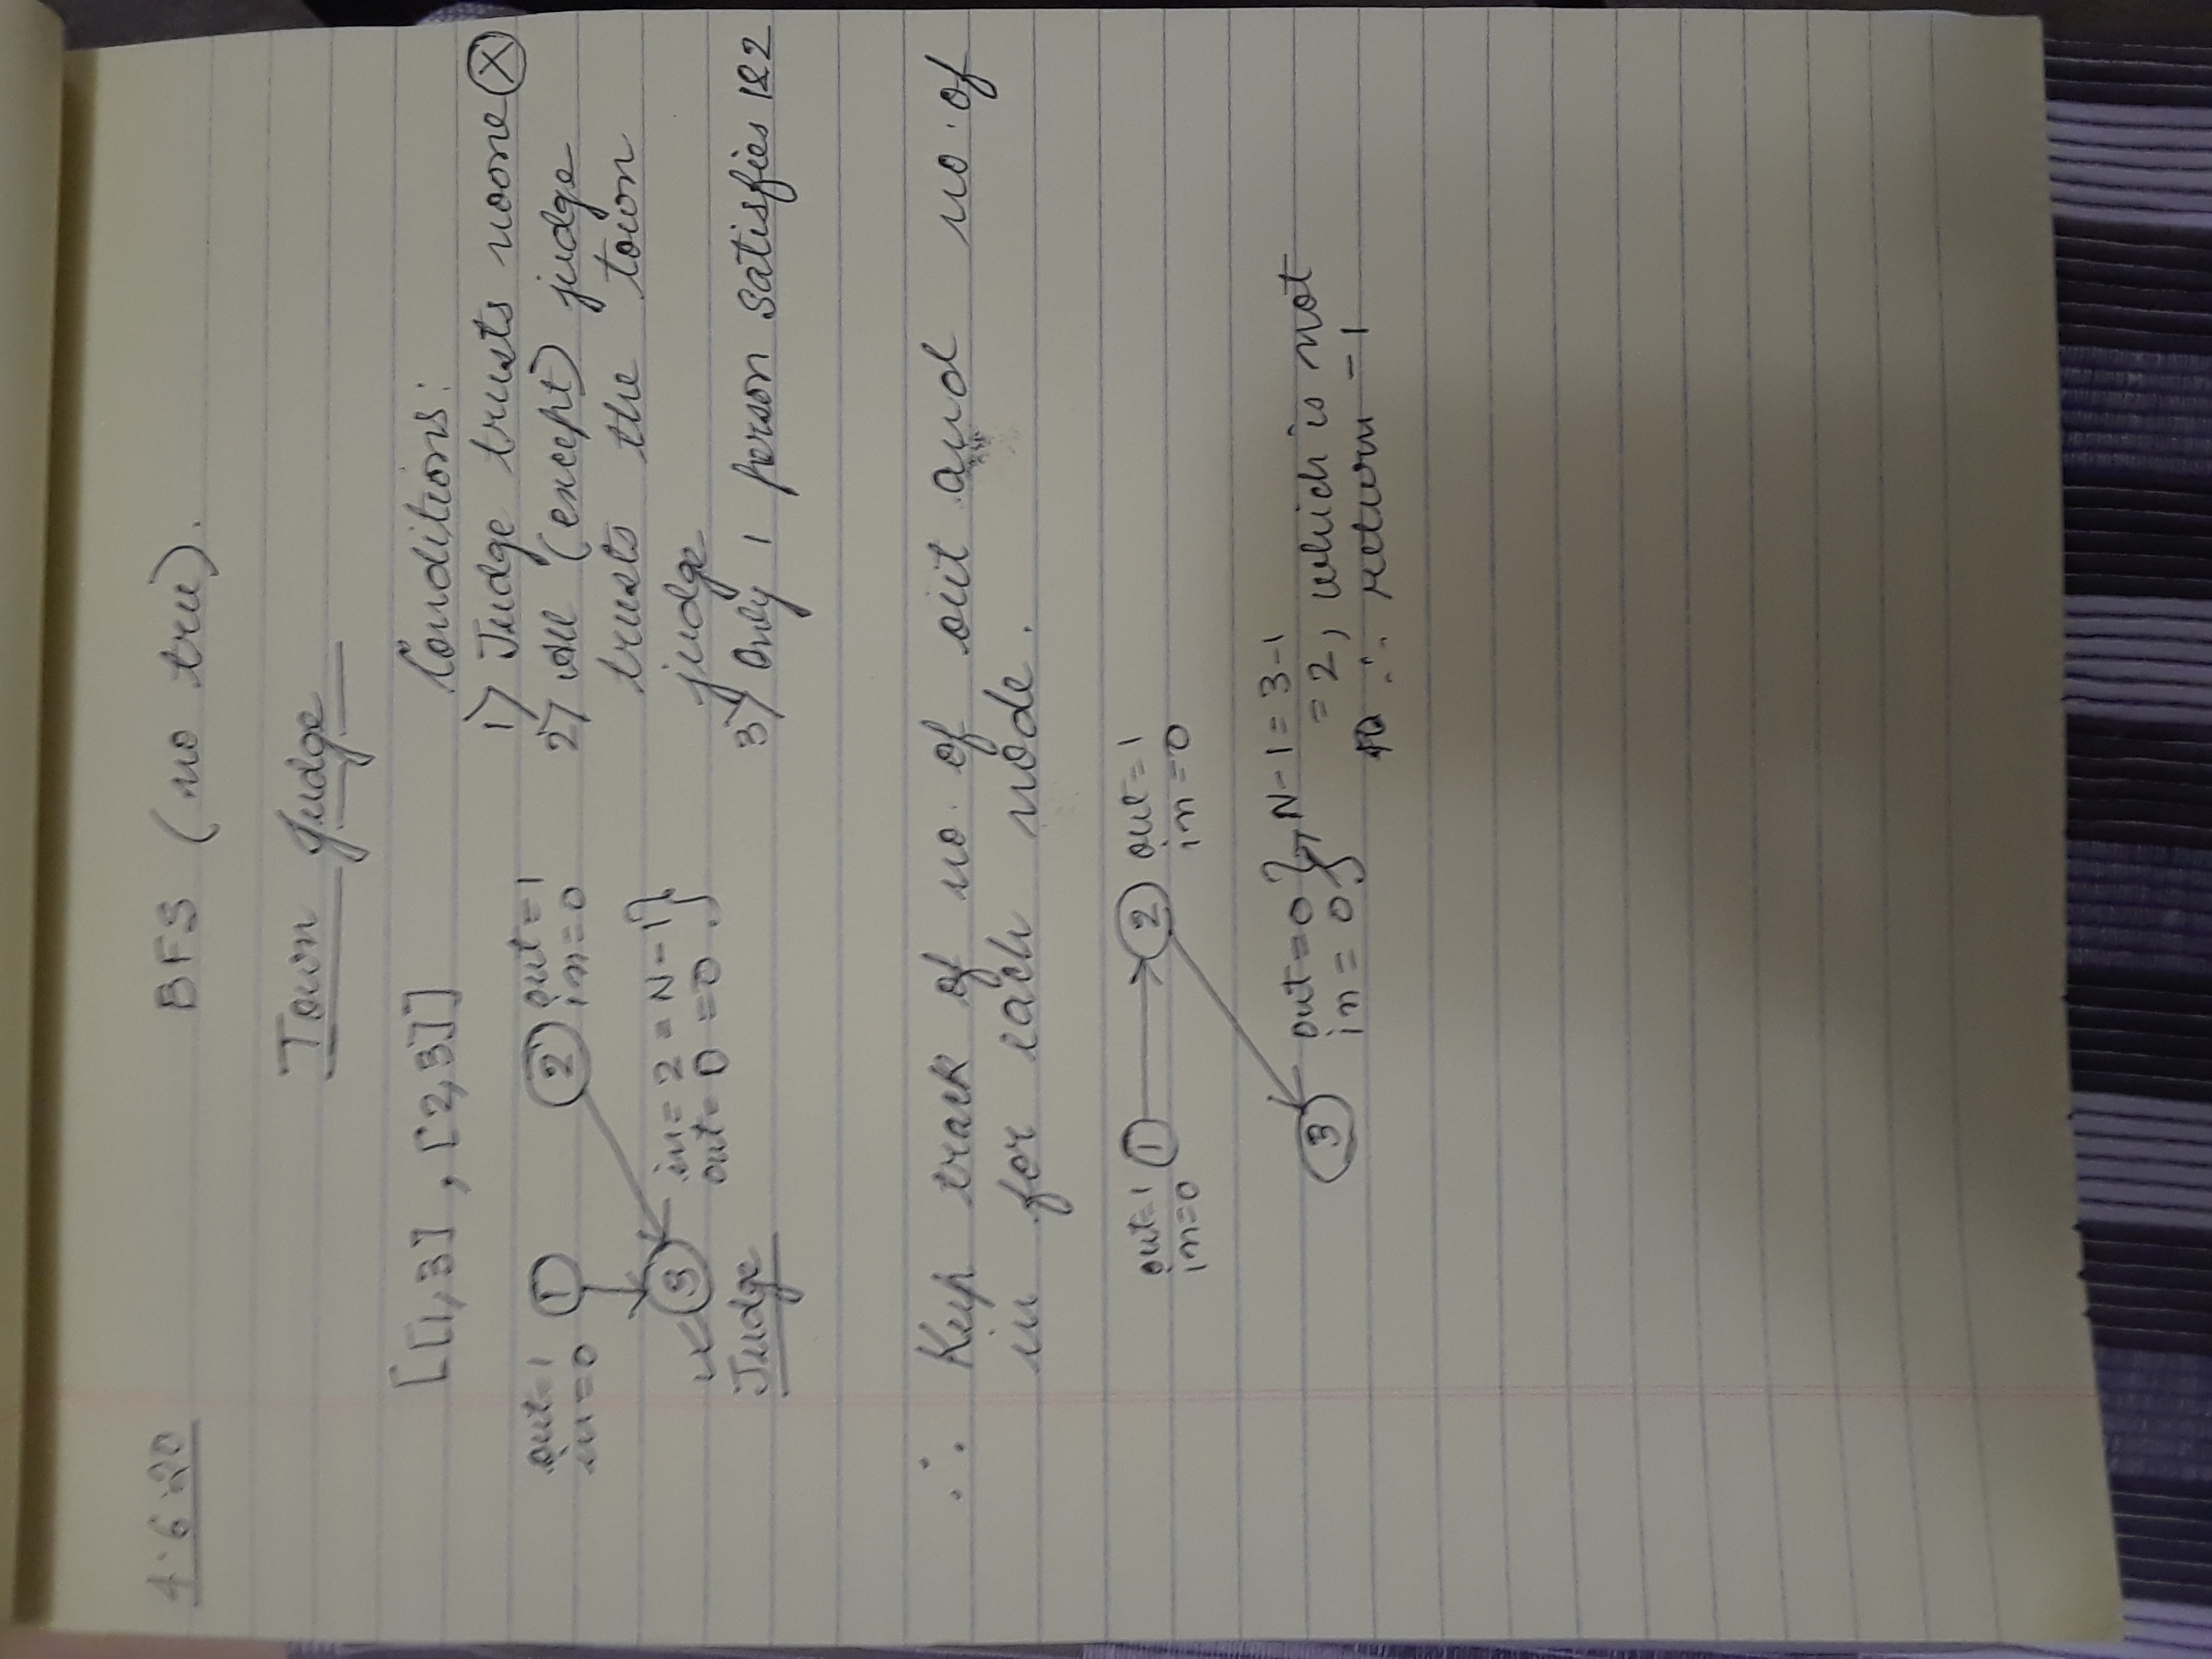 4.6.20
BFS (no tree).
Town Judge
[[1,3] , [2,3]]
out=1
in=0
1
2
out=1
in=0
3
in = 2 = N-1}
out = 0 = 0
Judge
Conditions:
1) Judge trusts noone X
2) All (except) judge
trusts the town
judge
3) Only 1 person satisfies 1&2
∴ Keep track of no. of out and no. of
in for each node.
out=1
in=0
1
2
out=1
in=0
3
out=0
in=0
} N-1 = 3-1
=2, which is not
∴ return -1